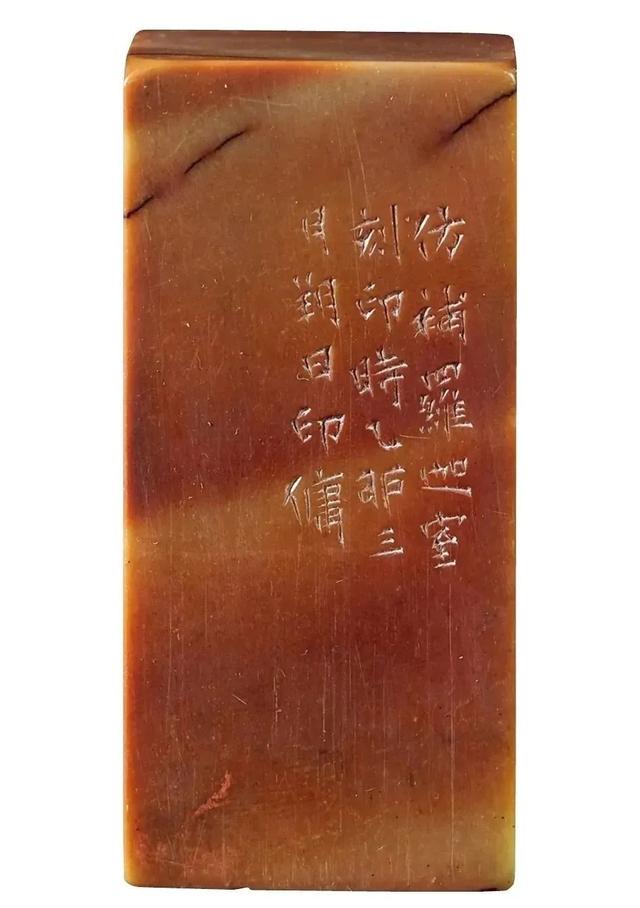 仿補羅迦室
刻印時乙卯三
月朔日印傭